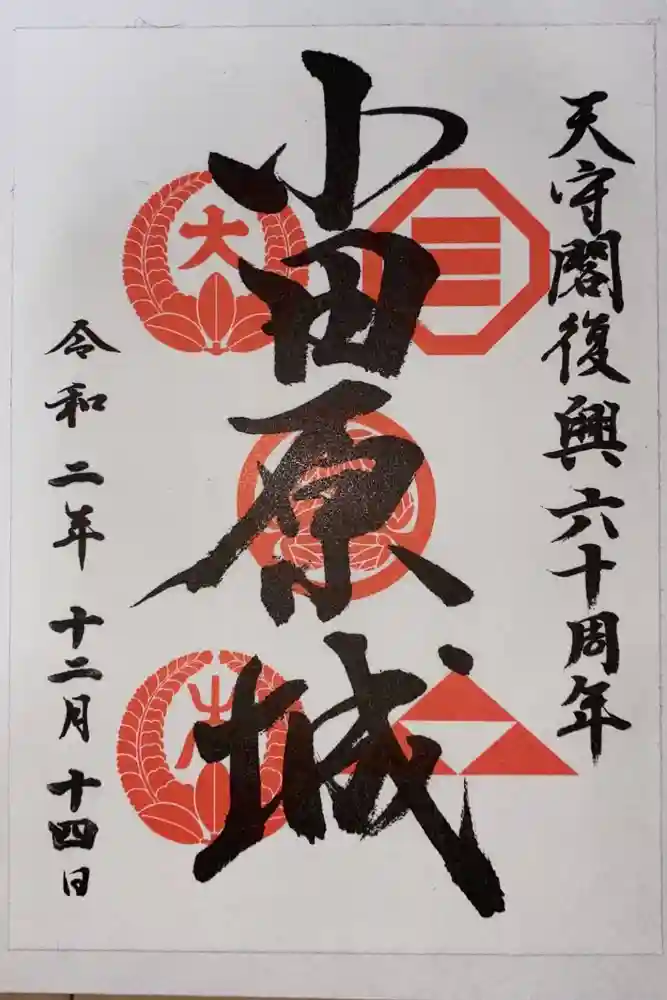 天守閣復興六十周年
小田原城
大
令和二年十二月十四日